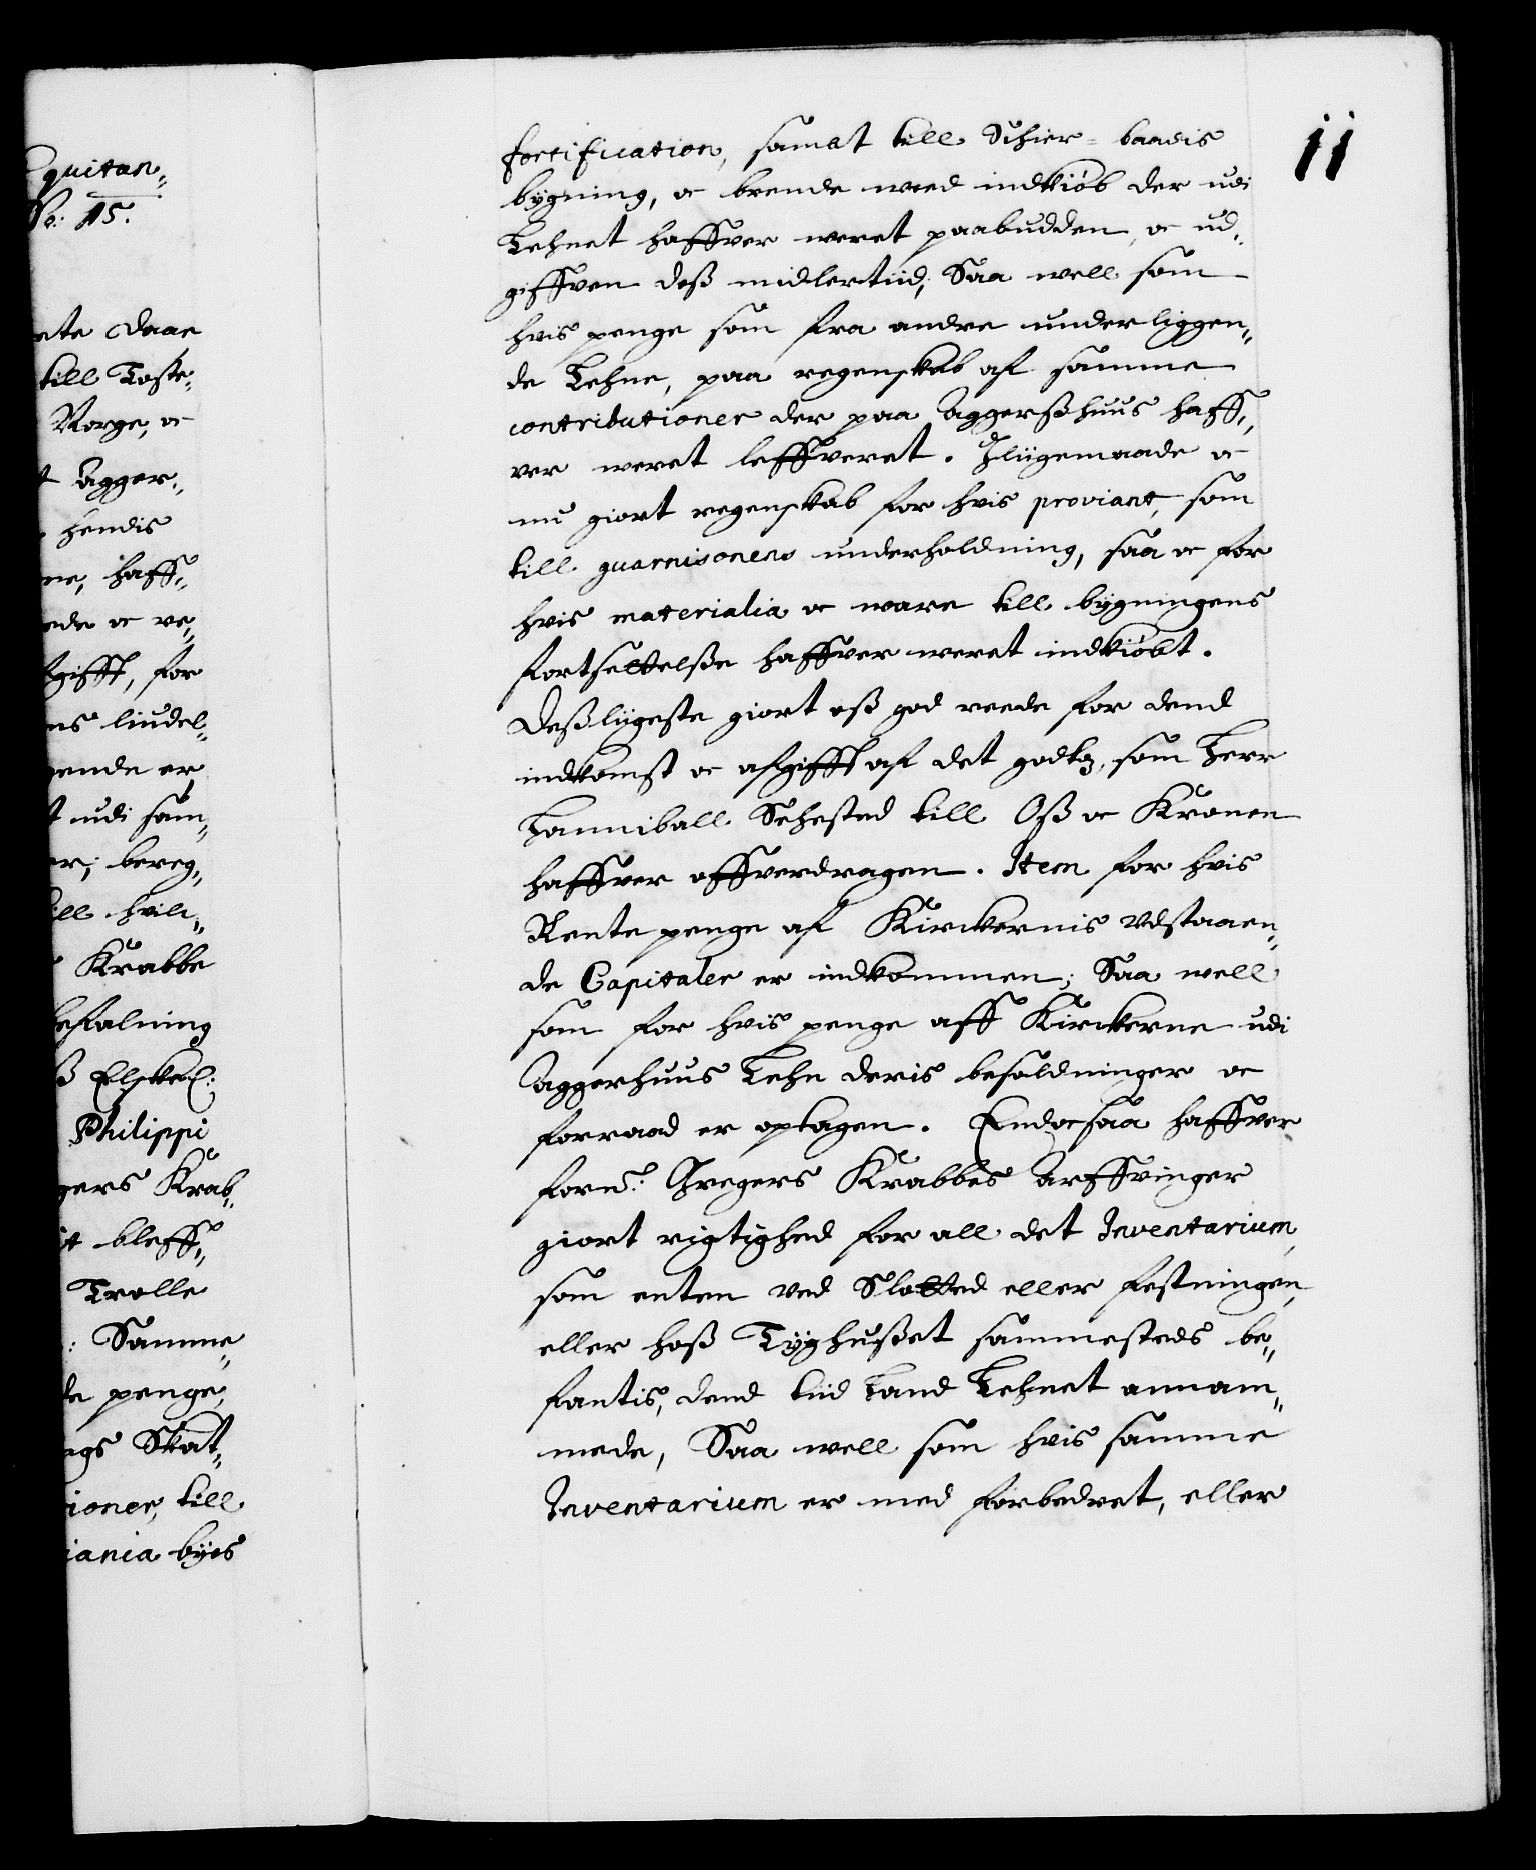 quitan„
No: 15.
ete Daae
till Toste„
Norge, oc
t Agger„
hendis
ne, haff„
ede oc re„
fgifft, for
ns liudel„
gende er
t udi sam„
er, bereg„
ill huil„
Krabbe
befalning
ß Elskel:
Philippi
gers Krab„
it bleff„
Trolle
: Samme„
de penge,
ags Skat„
tioner, till
iania byes
11
fortification, sampt till Schier-baadis
bygning, oc brende weed indkiøb der udi
Lehnet haffver weret paabudden, oc ud„
giffven deß midlertiid, Saa well som
hvis penge som fra andre underliggen„
de Lehne, paa regenskab af samme
contributioner der paa Aggerßhuus haff„
ver weret leffveret. Jliigemaade oc
nu giort regenskab for hvis proviant, som
till guarnisonens underholdning, saa oc for
hvis materialia oc ware till bygningens
fortsettelße haffver weret indkiøbt.
Deßliigeste giort oß god reede for dend
indkomst oc afgifft af det godtz, som Herr
Hanniball Sehested till Oß oc Kronen
haffver offverdragen. Item for hvis
Rente penge af Kirckernis Vdstaaen„
de Capitaler er indkommen; Saa well
som for hvis penge aff Kirckerne udi
Aggerhuus Lehn deris besoldninger oc
forraad er optagen. Endocsaa haffver
fornd: Gregers Krabbes Arffvinger
giort rigtighed for all det Inventarium,
som enten ved Slotted eller festningen,
eller hoß Tyghußet sammesteds be„
fantis, dend tiid hand Lehnet annam„
mede, Saa well som hvis samme
Inventarium er med forbedret, eller